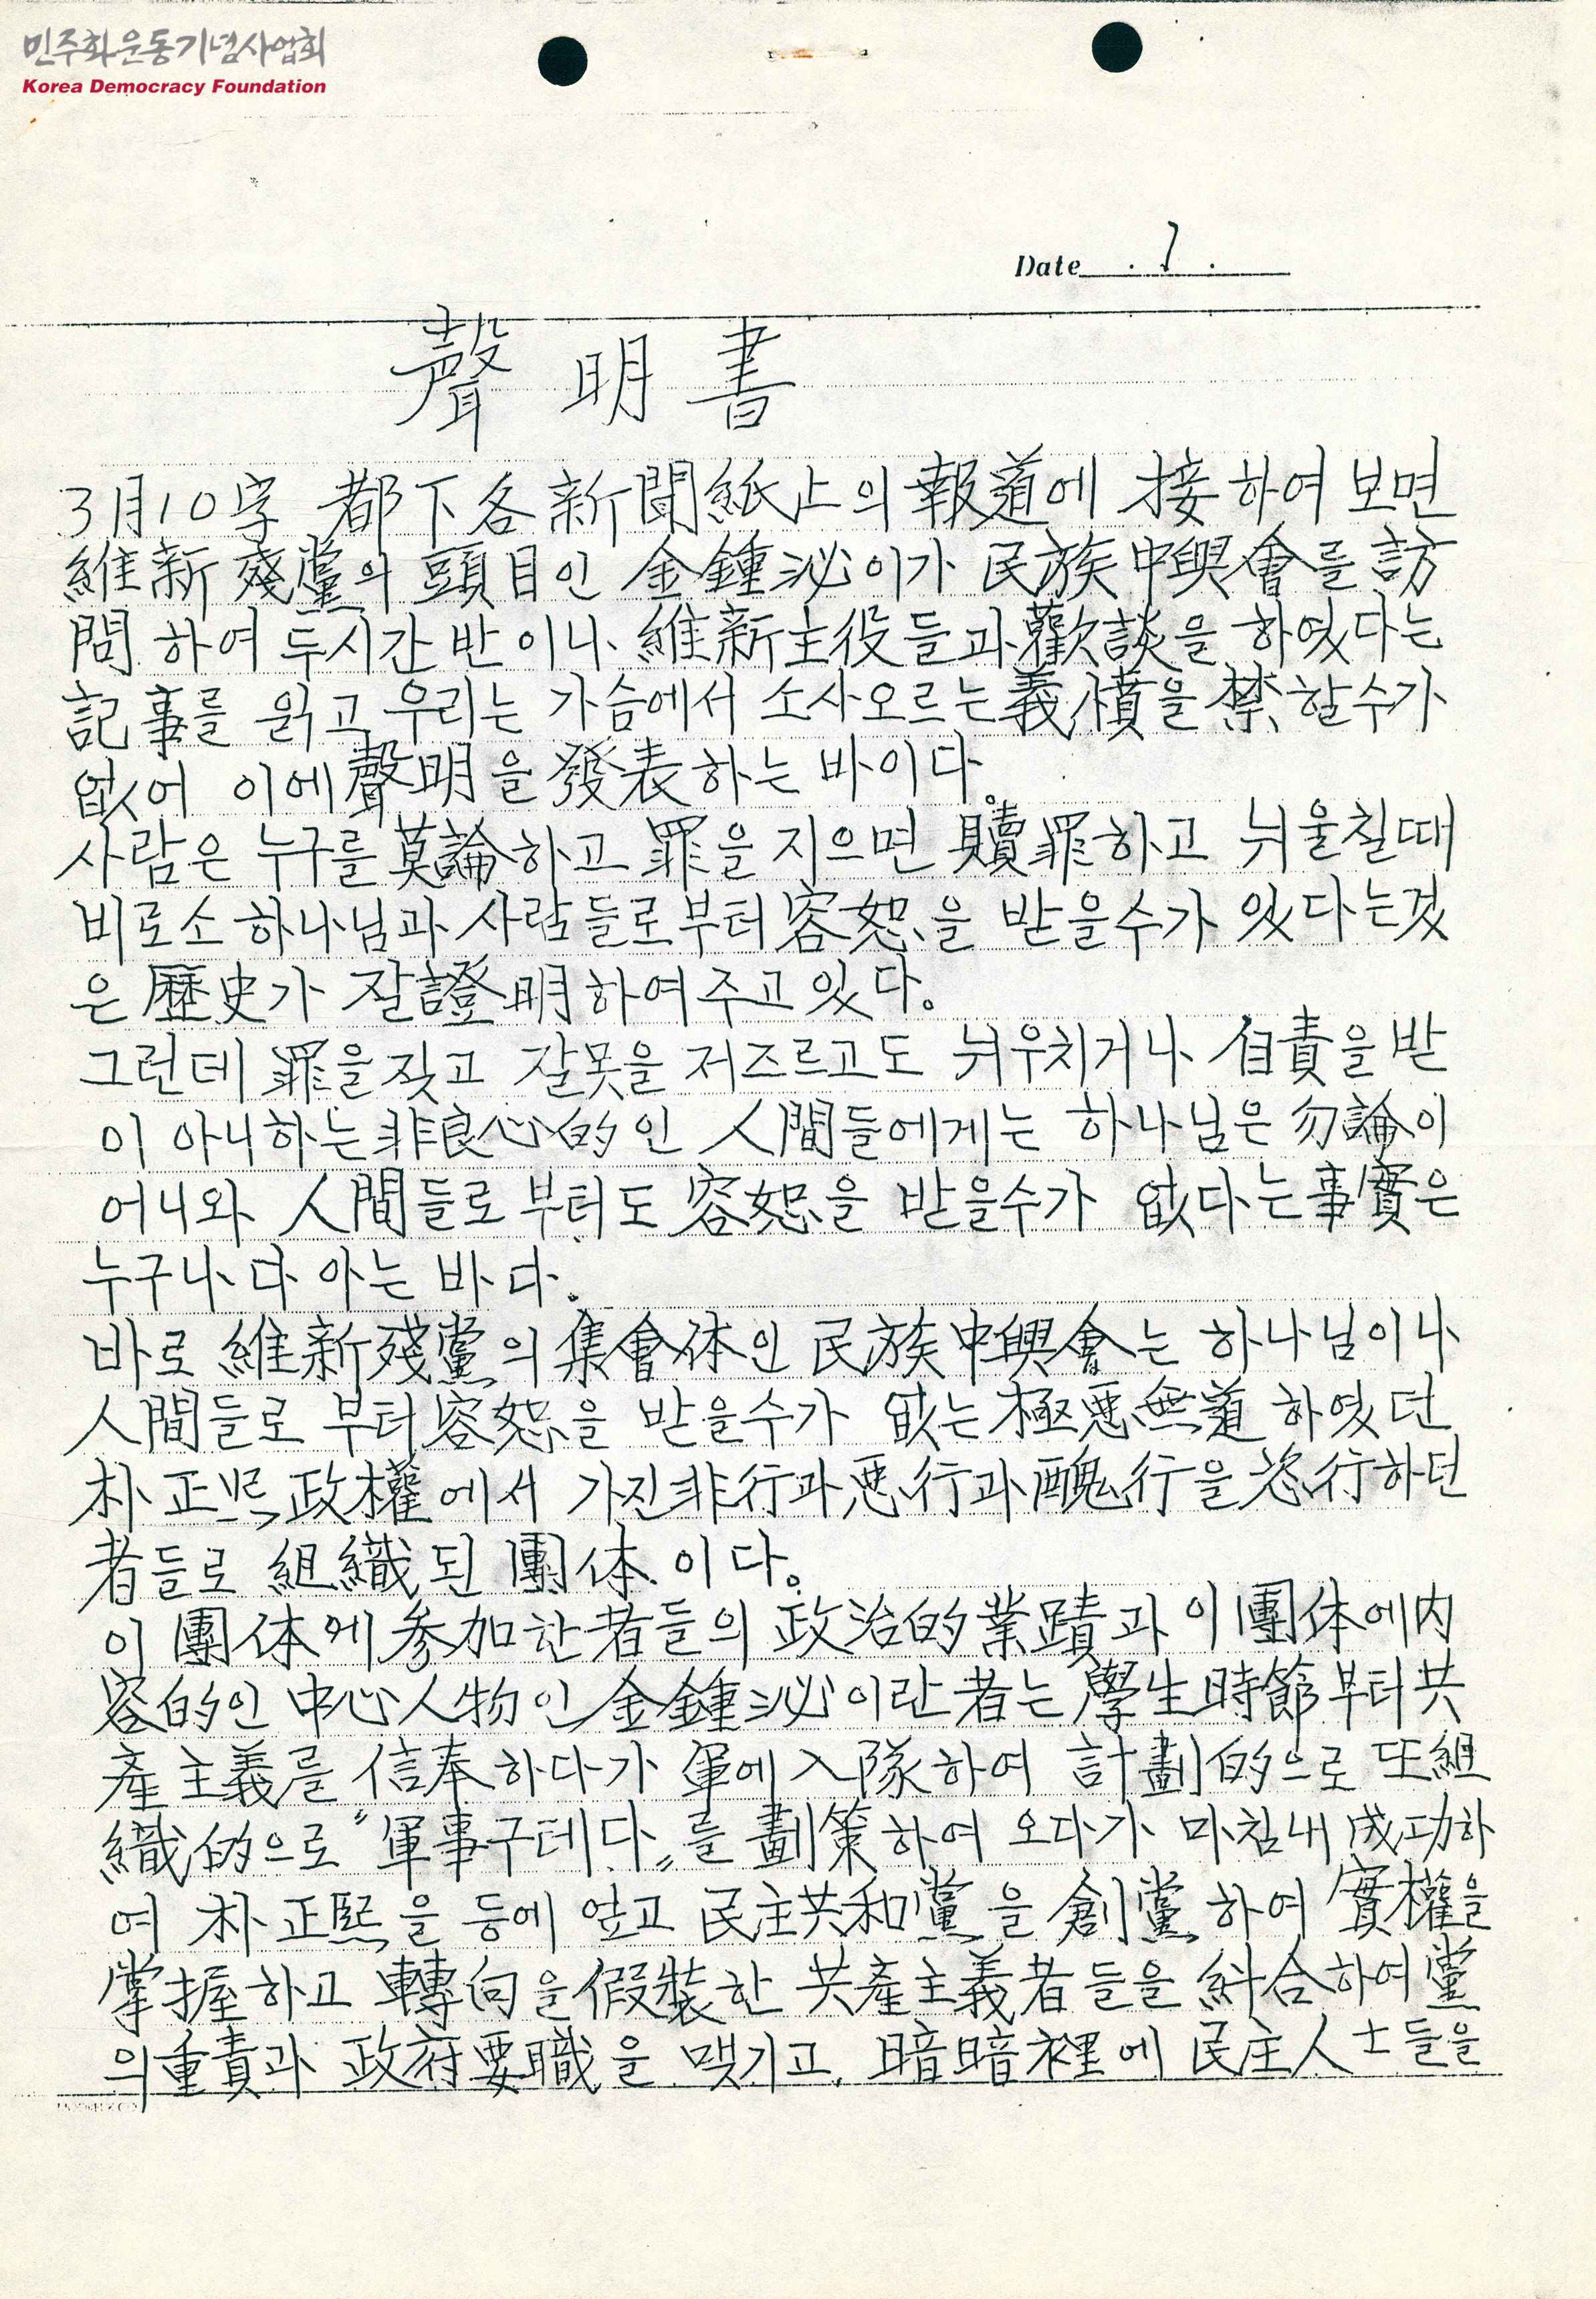 민주화운동기념사업회
Korea Democracy Foundation
Date . 1 .
聲明書
3月10字 都下各新聞紙上의 報道에 接하여 보면
維新殘黨의 頭目인 金鍾泌이가 民族中興會를 訪
問하여 두시간 반이나 維新主役들과 歡談을 하였다는
記事를 읽고 우리는 가슴에서 소사오르는 義憤을 禁할수가
없어 이에 聲明을 發表하는 바이다.
사람은 누구를 莫論하고 罪을 지으면 贖罪하고 뉘울칠때
비로소 하나님과 사람들로부터 容恕을 받을수가 있다는것
은 歷史가 잘 證明하여주고있다.
그런데 罪을 짓고 잘못을 저즈르고도 뉘우치거나 自責을 받
이 아니하는 非良心的인 人間들에게는 하나님은 勿論이
어니와 人間들로부터도 容恕을 받을수가 없다는 事實은
누구나 다 아는 바다.
바로 維新殘黨의 集會体인 民族中興會는 하나님이나
人間들로부터 容恕을 받을수가 없는 極惡無道하였던
朴正熙政權에서 가진非行과 惡行과 醜行을 恣行하던
者들로 組織된 團体이다.
이 團体에 参加한 者들의 政治的業蹟과 이 團体에 内
容的인 中心人物인 金鍾泌이란 者는 學生時節부터 共
產主義를 信奉하다가 軍에 入隊하여 計劃的으로 또 組
織的으로 "軍事구데다"를 劃策하여 오다가 마침내 成功하
여 朴正熙을 등에 업고 民主共和黨을 創黨하여 實權을
掌握하고 轉向을 假裝한 共產主義者들을 糾合하여 黨
의 重責과 政府要職을 맷기고, 暗暗裡에 民主人士들을